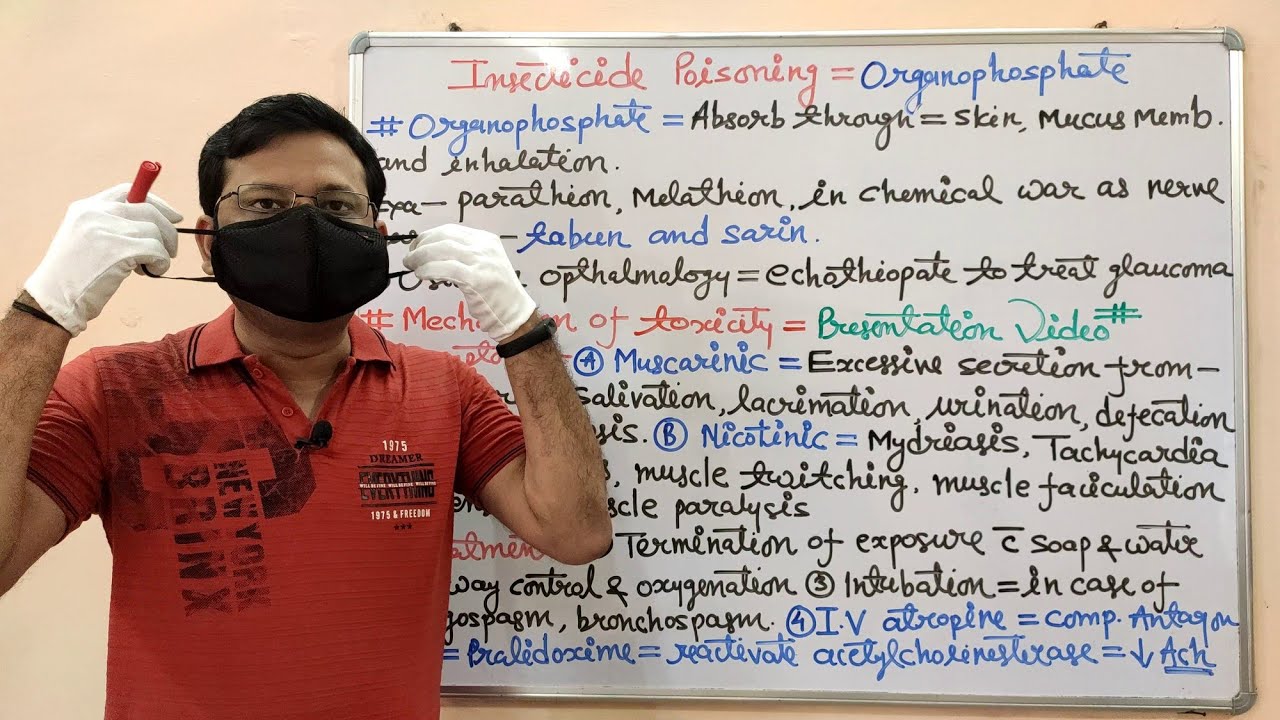 Insecticide Poisoning = Organophosphate
# Organophosphate = Absorb through = Skin, Mucus Memb.
and inhalation.
Exa - parathion, Melathion, in chemical war as nerve
- tabun and sarin.
opthalmology = echothiopate to treat glaucoma
# Mech of toxicity = Presentation Video #
Ⓐ Muscarinic = Excessive secretion from -
Salivation, lacrimation, urination, defecation
sis. Ⓑ Nicotinic = Mydriasis, Tachycardia
muscle twitching, muscle faciculation
scle paralysis
atment Termination of exposure c̄ soap & water
way control & oxygenation ③ Intubation = in case of
gospasm, bronchospasm. ④ I.V atropine = comp. Antagon
= Pralidoxime = reactivate acetylcholinesterase = ↓ Ach
1975
DREAMER
EVERYTHING
1975 & FREEDOM
NEW YORK
BRINX